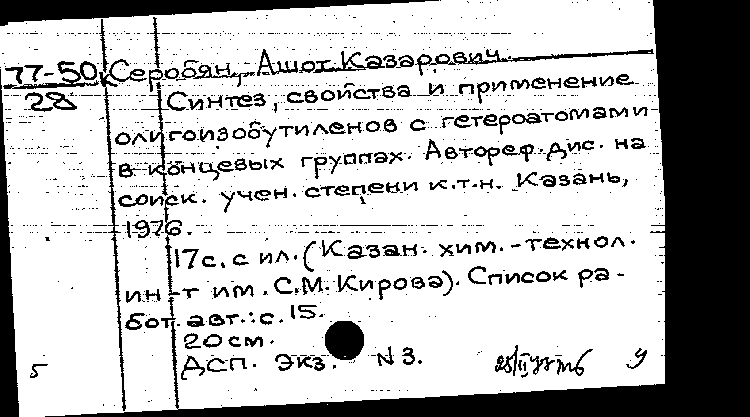 77-50
28
Серобян, Ашот Казарович.
Синтез, свойства и применение
олигоизобутиленов с гетероатомами
в концевых группах. Автореф. дис. на
соиск. учен. степени к.т.н. Казань,
1976.
17с. с ил. (Казан. хим.-технол.
ин-т им. С.М. Кирова). Список ра-
бот. авт.: с. 15.
20см.
5 ДСП. Экз. N3. у